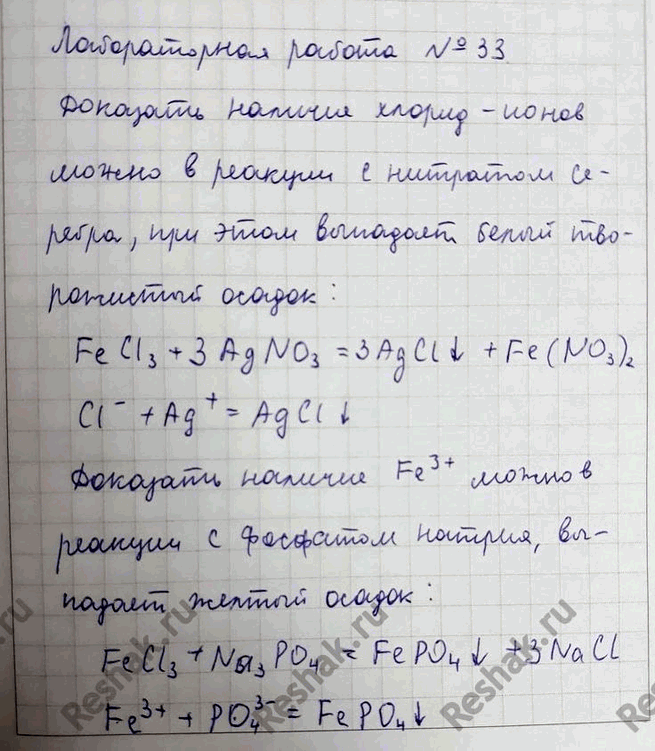 Лабораторная работа №33
Доказать наличия хлорид-ионов
можно в реакции с нитратом се-
ребра, при этом выпадает белый тво-
рожистый осадок:
FeCl₃ + 3AgNO₃ = 3AgCl↓ + Fe(NO₃)₂
Cl⁻ + Ag⁺ = AgCl↓
Доказать наличие Fe³⁺ можно в
реакции с фосфатом натрия, вы-
падает желтый осадок:
FeCl₃ + Na₃PO₄ = FePO₄↓ + 3NaCl
Fe³⁺ + PO₄³⁻ = FePO₄↓
Reshak.ru
Reshak.ru
Reshak.ru